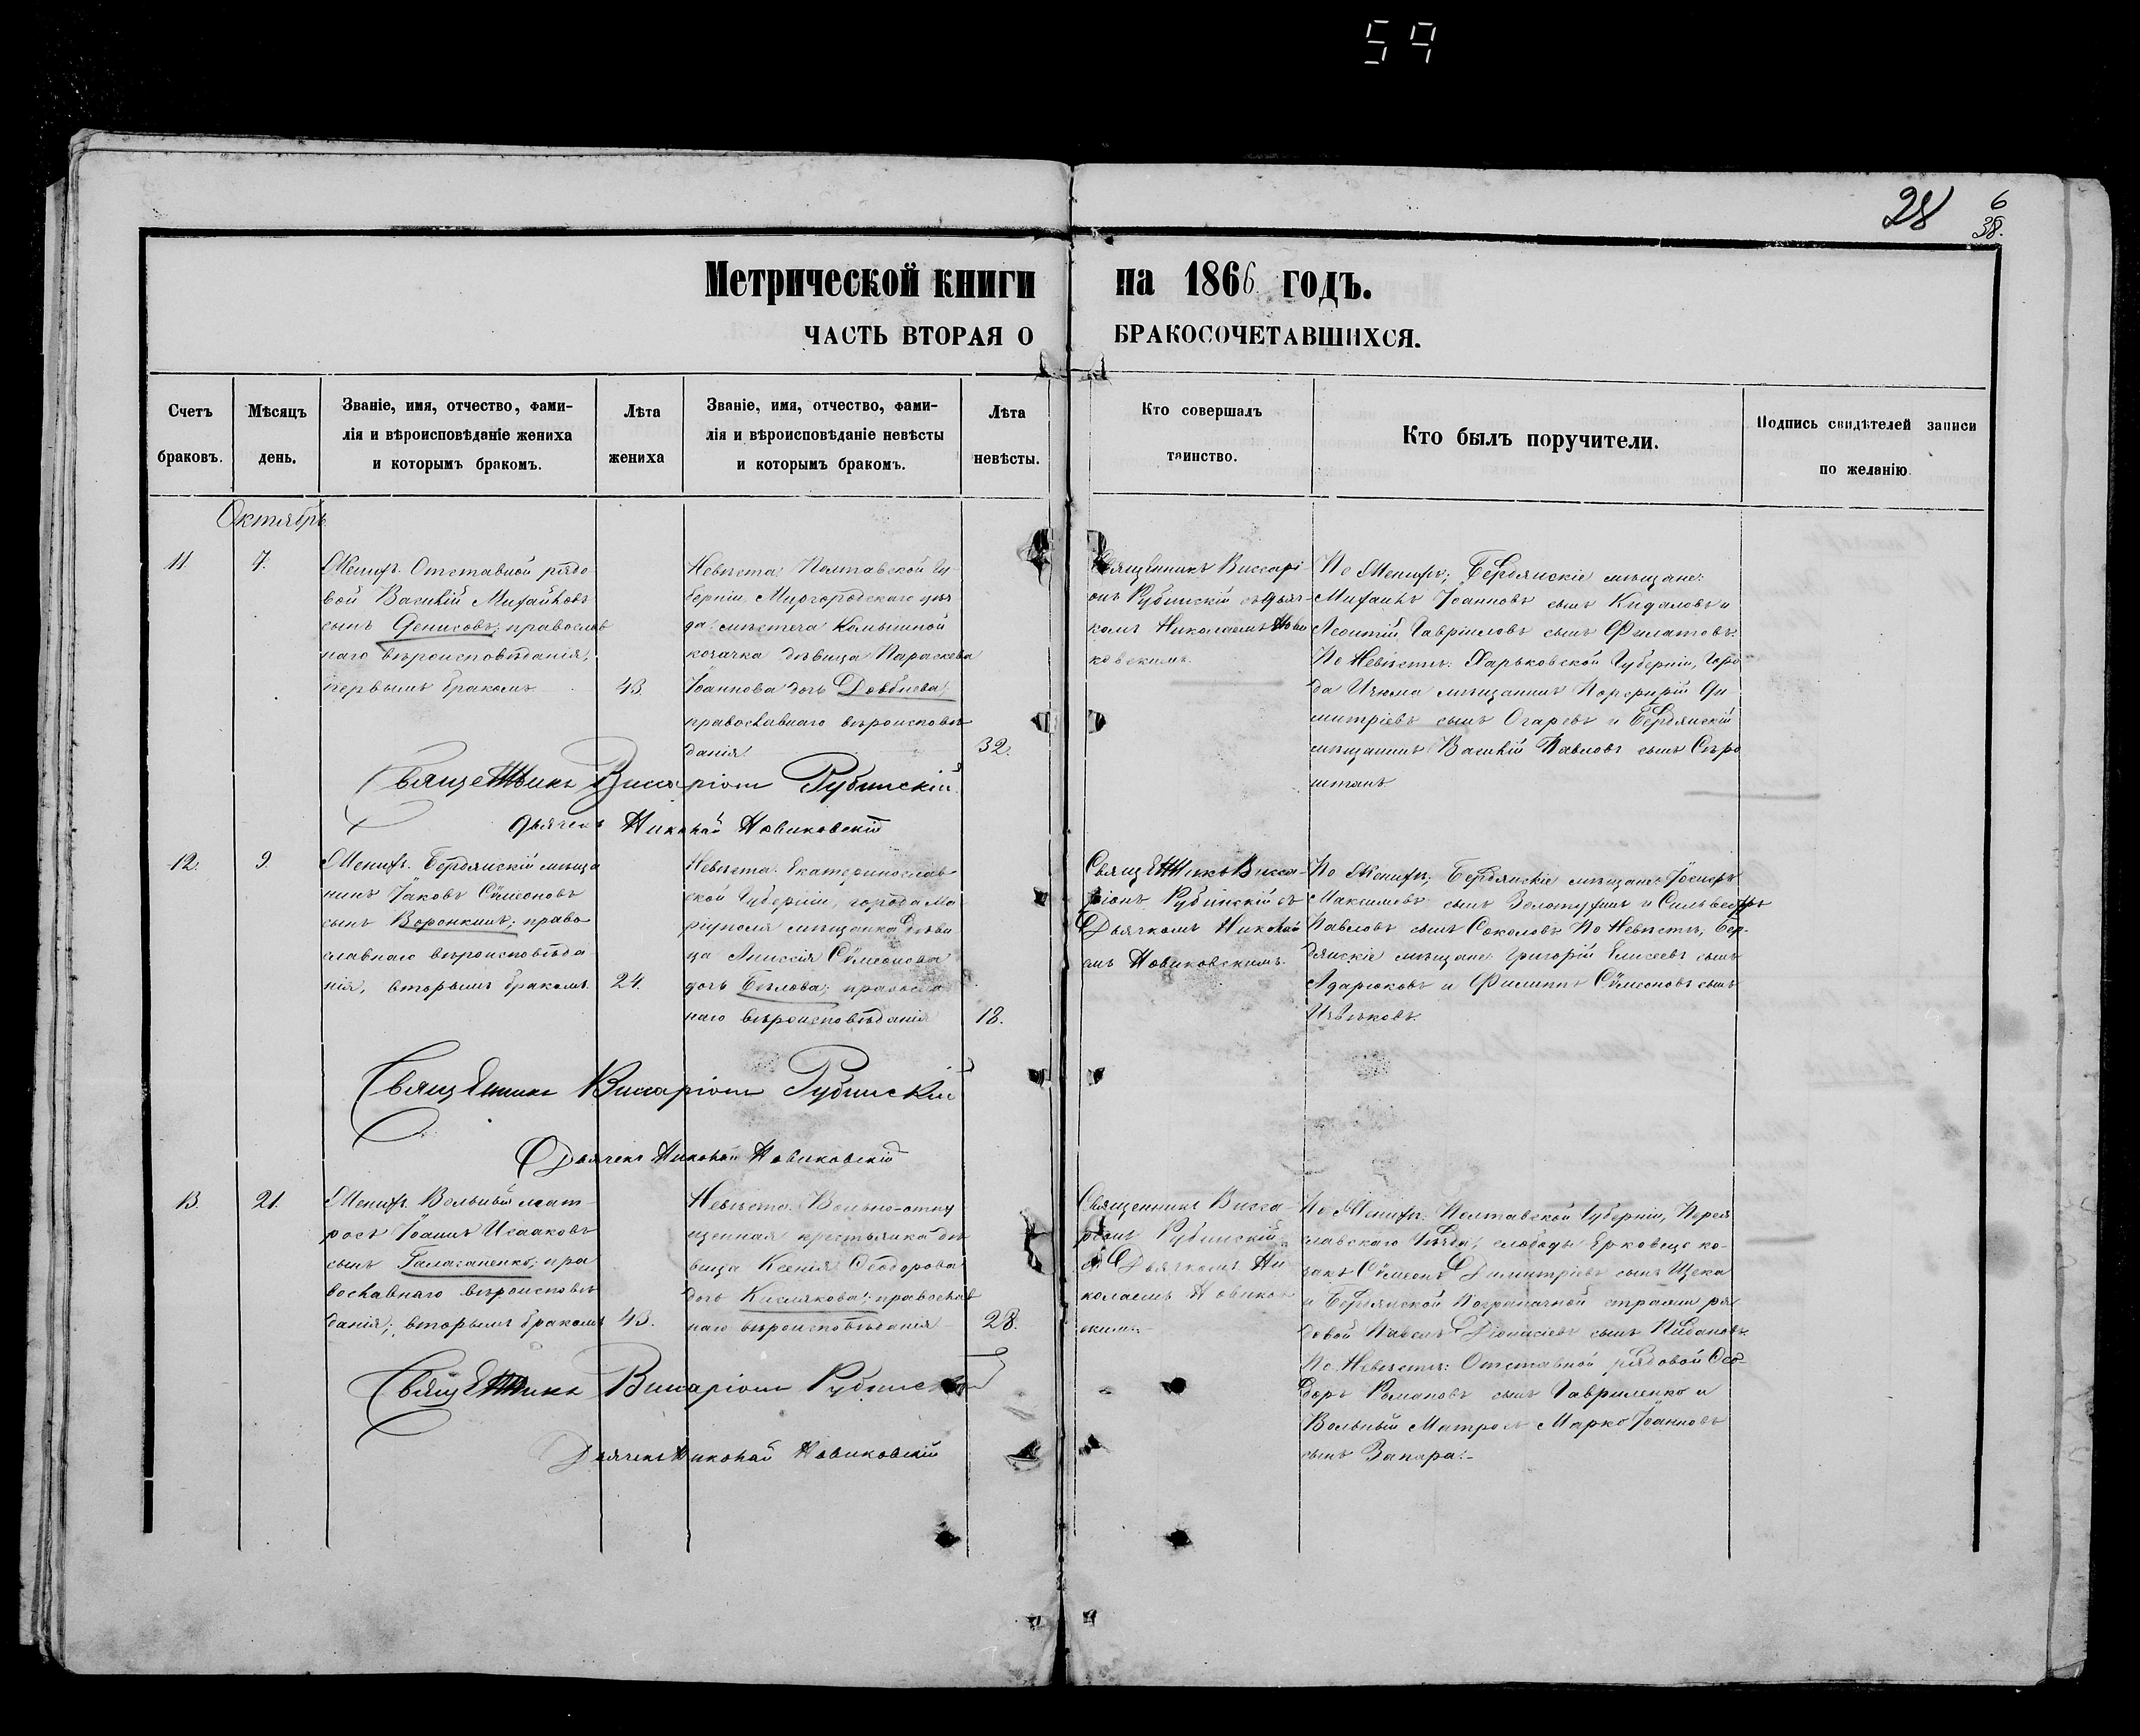 59
28
6
38.
Метрической книги на 1866 годъ.
ЧАСТЬ ВТОРАЯ О БРАКОСОЧЕТАВШИХСЯ.
Счетъ браковъ.
Мѣсяцъ день.
Званіе, имя, отчество, фами-
лія и вѣроисповѣданіе жениха
и которымъ бракомъ.
Лѣта жениха
Званіе, имя, отчество, фами-
лія и вѣроисповѣданіе невѣсты
и которымъ бракомъ.
Лѣта невѣсты.
Кто совершалъ таинство.
Кто былъ поручители.
Подпись свидѣтелей записи
по желанію
Октябрь
11
7.
Женихъ Отставной рядо
вой Василій Михайловъ
сынъ Денисовъ; православ
наго вѣроисповѣданія,
первымъ бракомъ
43.
Невѣста: Полтавской Гу-
берніи Миргородскаго уѣз
да мѣстеча Комышной
козачка дѣвица Параскева
Іоаннова дочь Довбнева;
православнаго вѣроисповѣ
данія
32.
Священникъ Виссарі
онъ Рубинскій съ дьяч-
комъ Николаемъ Нови
ковскимъ
По Женихѣ; Бердянскіе мѣщане:
Михаилъ Іоанновъ сынъ Кидаловъ и
Леонтій Гавріиловъ сынъ Филатовъ.
По Невѣстѣ: Харьковской Губерніи, горо
да Изюма мѣщанинъ Порфирій Ди
митріевъ сынъ Огаревъ и Бердянскій
мѣщанинъ Василій Павловъ сынъ Сѣро
штанъ.
Священникъ Виссаріонъ Рубинскій
Дьячекъ Николай Новиковскій
12.
9
Женихъ. Бердянскій мѣща
нинъ Іаковъ Сѵмеоновъ
сынъ Воронкинъ; право
славнаго вѣроисповѣда
нія, вторымъ бракомъ
24.
Невѣста. Екатеринослав
ской Губерніи, города Ма
ріуполя мѣщанка дѣви
ца Анисія Сѵмеонова
дочь Бѣлова; православ
наго вѣроисповѣданія
18.
Священникъ Висса-
ріонъ Рубинскій съ
Дьячкомъ Никола
емъ Новиковскимъ.
По Женихѣ; Бердянскіе мѣщане Іосифъ
Максимовъ сынъ Золотухинъ и Сильвестръ
Павловъ сынъ Соколовъ. По Невѣстѣ; Бер-
дянскіе мѣщане Григорій Елисеевъ сынъ
Адарюковъ и Филиппъ Сѵмеоновъ сынъ
Священникъ Виссаріонъ Рубинскій
Дьячекъ Николай Новиковскій
13.
21.
Женихъ Вольный мат
росъ Іоаннъ Исааковъ
сынъ Галаганенко; пра
вославнаго вѣроисповѣ
данія; вторымъ бракомъ
43.
Невѣста. Вольно-отпу
щенная крестьянка дѣ
вица Ксенія Ѳеодорова
дочь Кислякова; православ
наго вѣроисповѣданія
28.
Священникъ Висса-
ріонъ Рубинскій
съ Дьячкомъ Ни
колаемъ Новиков
скимъ.
По Женихѣ: Полтавской Губерніи, Перея
славскаго Уѣзда, слободы Ерковецъ ко-
закъ Сѵмеонъ Димитріевъ сынъ Щека
и Бердянской Пограничной стражи ря
довой Павелъ Діонисіевъ сынъ
По Невѣстѣ: Отставной рядовой Ѳео-
доръ Романовъ сынъ Гавриленко и
Вольный Матросъ Марко Іоанновъ
сынъ Запара.
Священникъ Виссаріонъ Рубинскій
Дьячекъ Николай Новиковскій